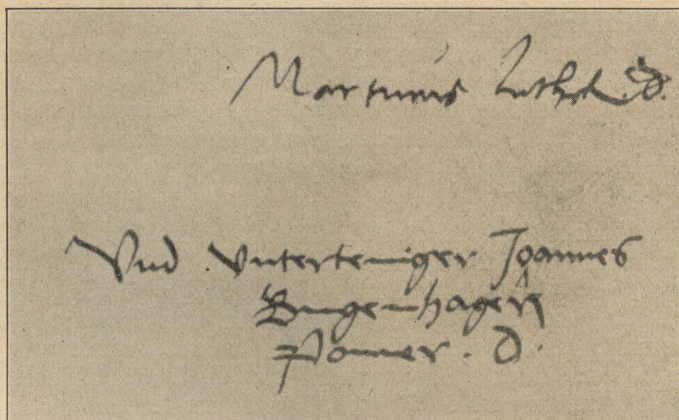 Martinus Luther .D.
Vnd Vnterteniger Joannes
Bugenhagen
Pomer . D.